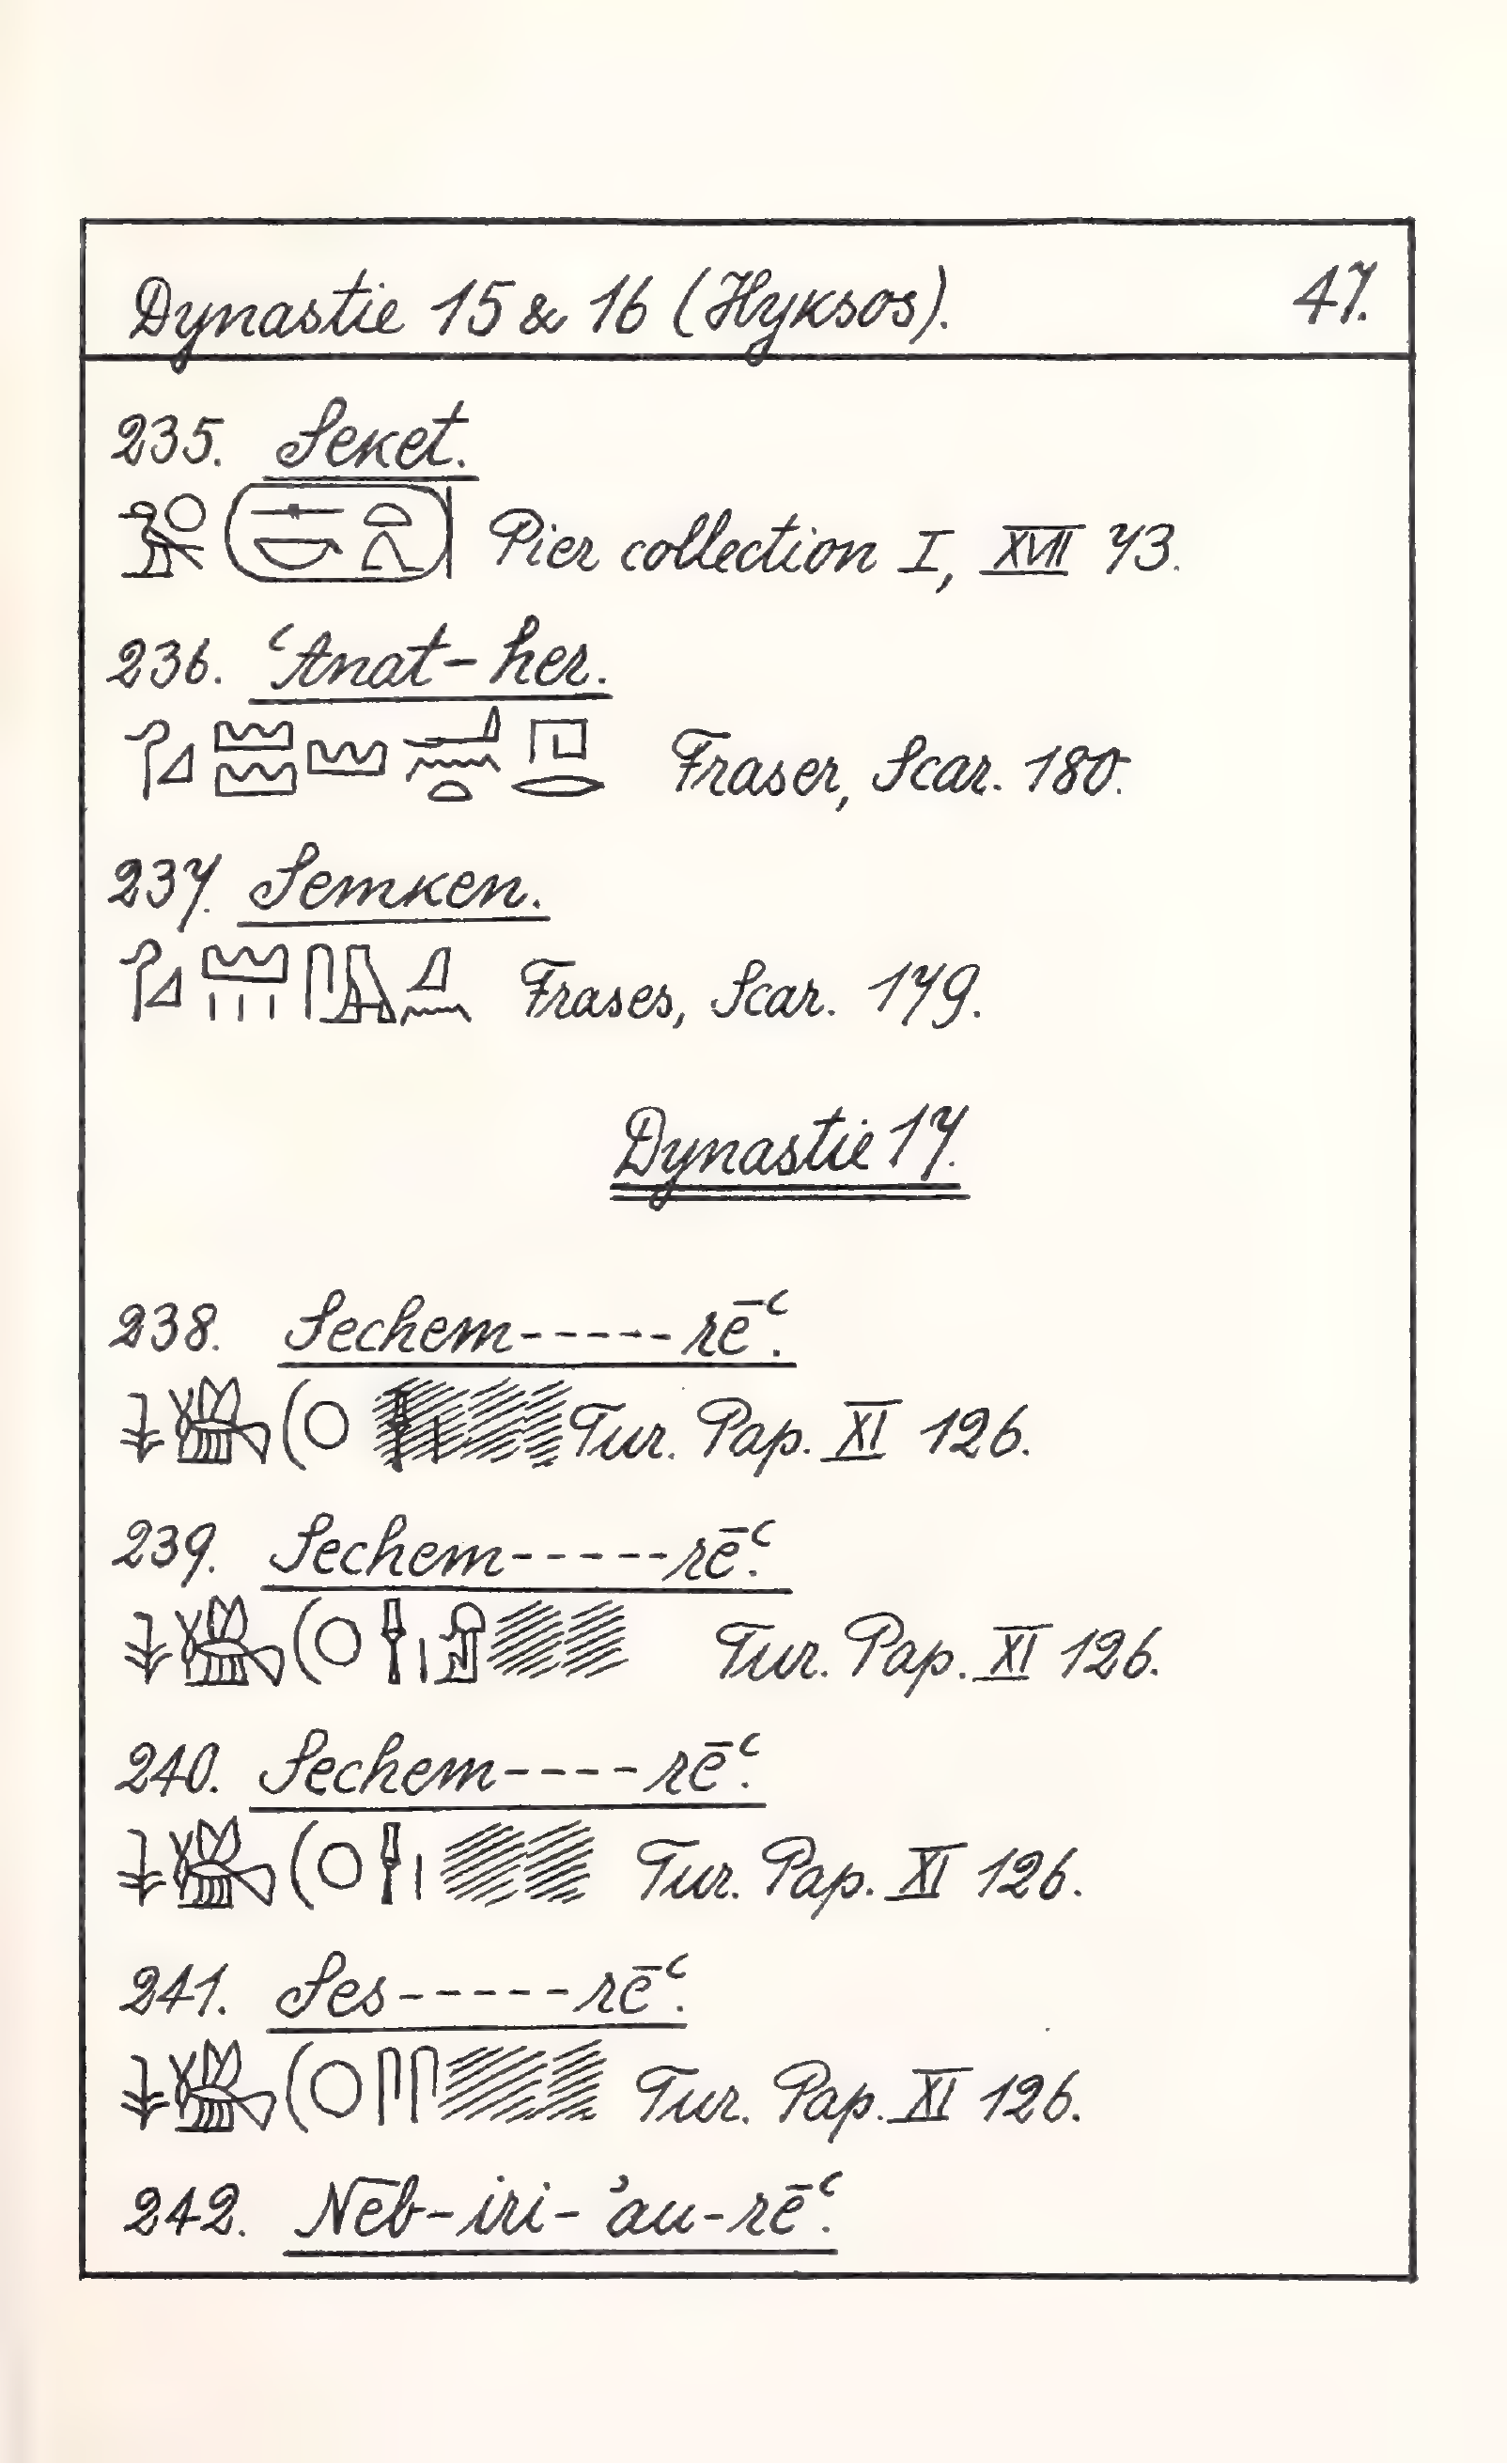 Dynastie 15 & 16 (Hyksos). 47.
235. Seket.
Pier collection I, XVII 73.
236. ʿAnat-her.
Fraser, Scar. 180.
237. Semken.
Frases, Scar. 179.
Dynastie 17.
238. Sechem-----rēʿ.
Tur. Pap. XI 126.
239. Sechem-----rēʿ.
Tur. Pap. XI 126.
240. Sechem----rēʿ.
Tur. Pap. XI 126.
241. Ses-----rēʿ.
Tur. Pap. XI 126.
242. Neb-iri-ʾau-rēʿ.